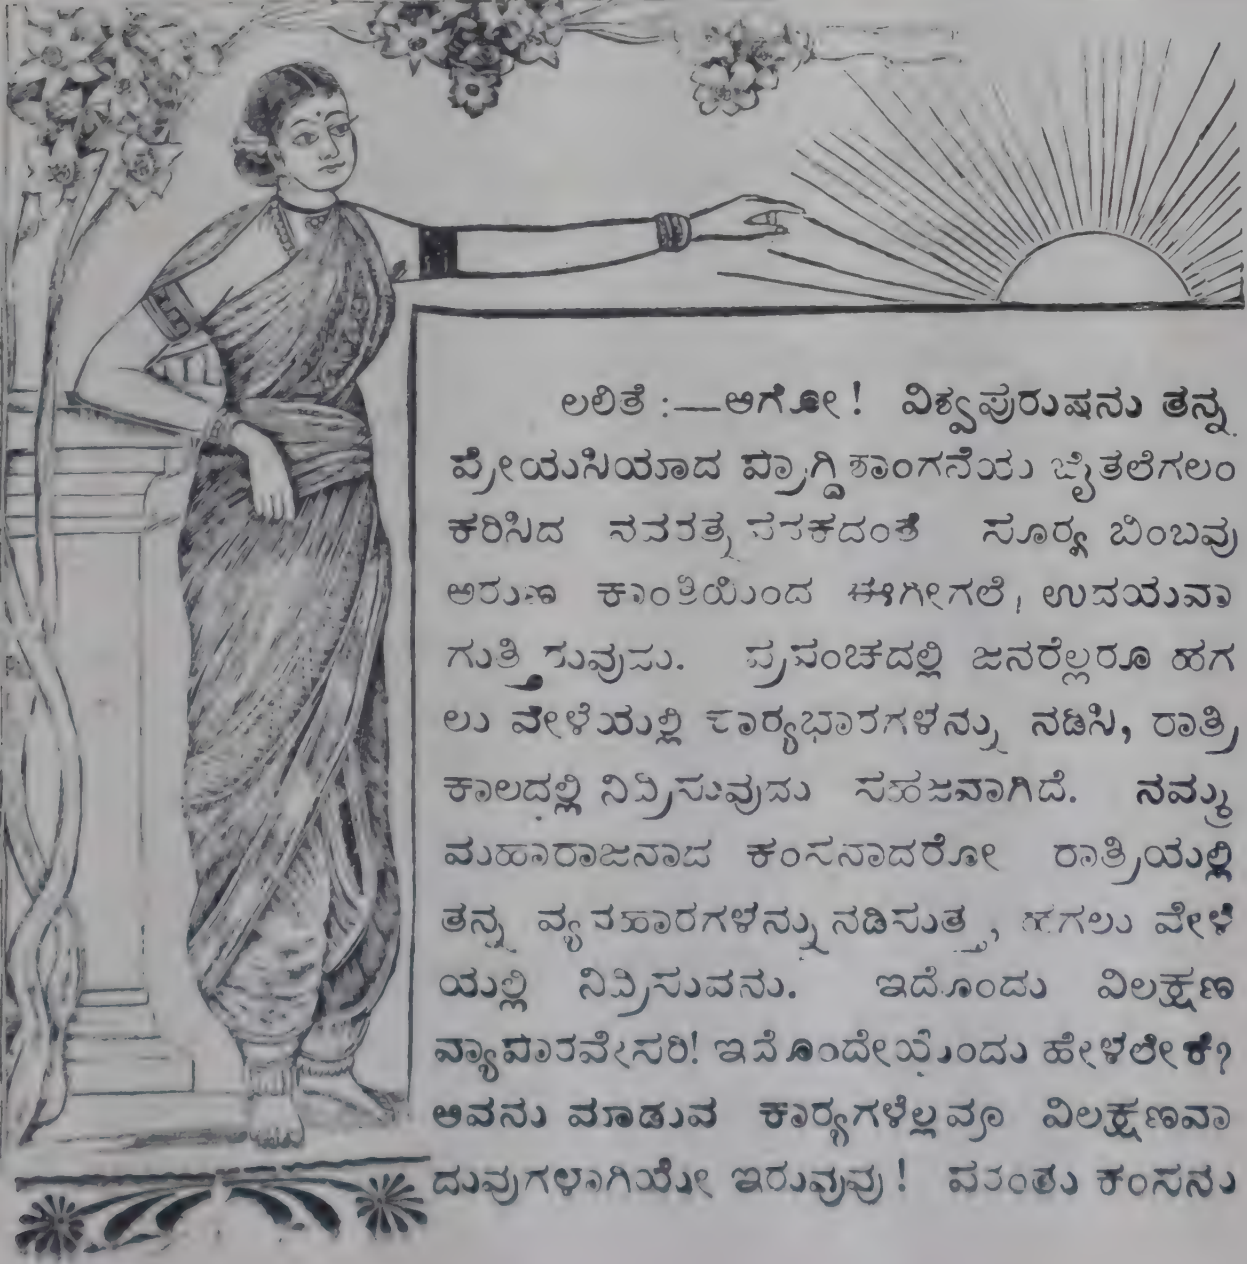 ಲಲಿತೆ :—ಆಗೋ! ವಿಶ್ವಪುರುಷನು ತನ್ನ
ಪ್ರೇಯಸಿಯಾದ ಪ್ರಾಗ್ದಿಶಾಂಗನೆಯ ಬೈತಲೆಗಲಂ
ಕರಿಸಿದ ನವರತ್ನ ಪದಕದಂತೆ ಸೂರ್ಯ ಬಿಂಬವು
ಅರುಣ ಕಾಂತಿಯಿಂದ ಈಗೀಗಲೆ, ಉದಯವಾ
ಗುತ್ತಿರುವುದು. ಪ್ರಪಂಚದಲ್ಲಿ ಜನರೆಲ್ಲರೂ ಹಗ
ಲು ವೇಳೆಯಲ್ಲಿ ಕಾರ್ಯಭಾರಗಳನ್ನು ನಡಿಸಿ, ರಾತ್ರಿ
ಕಾಲದಲ್ಲಿ ನಿದ್ರಿಸುವುದು ಸಹಜವಾಗಿದೆ. ನಮ್ಮ
ಮಹಾರಾಜನಾದ ಕಂಸನಾದರೋ ರಾತ್ರಿಯಲ್ಲಿ
ತನ್ನ ವ್ಯವಹಾರಗಳನ್ನು ನಡಿಸುತ್ತ, ಹಗಲು ವೇಳೆ
ಯಲ್ಲಿ ನಿದ್ರಿಸುವನು. ಇದೊಂದು ವಿಲಕ್ಷಣ
ವ್ಯಾಪಾರವೇಸರಿ! ಇದೊಂದೇಯೆಂದು ಹೇಳಲೇಕೆ?
ಅವನು ಮಾಡುವ ಕಾರ್ಯಗಳೆಲ್ಲವೂ ವಿಲಕ್ಷಣವಾ
ದುವುಗಳಾಗಿಯೇ ಇರುವುವು! ಪರಂತು ಕಂಸನು